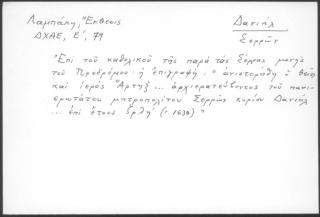 Λαμπάκη, Ἔκθεσις
Δανιήλ
ΔΧΑΕ, Ε΄, 79
Σερρῶν
"Ἐπί τοῦ καθολικοῦ τῆς παρά τάς Σέρρας μονῆς
τοῦ Προδρόμου ἡ ἐπιγραφή: "ἀνιστορήθη ὁ θεῖος
καί ἱερός Νάρτηξ ... ἀρχιερατεύοντος τοῦ πανι-
ερωτάτου μητροπολίτου Σερρῶν κυρίου Δανιήλ
... ἐπί ἔτους ζρλη΄ (= 1630) "